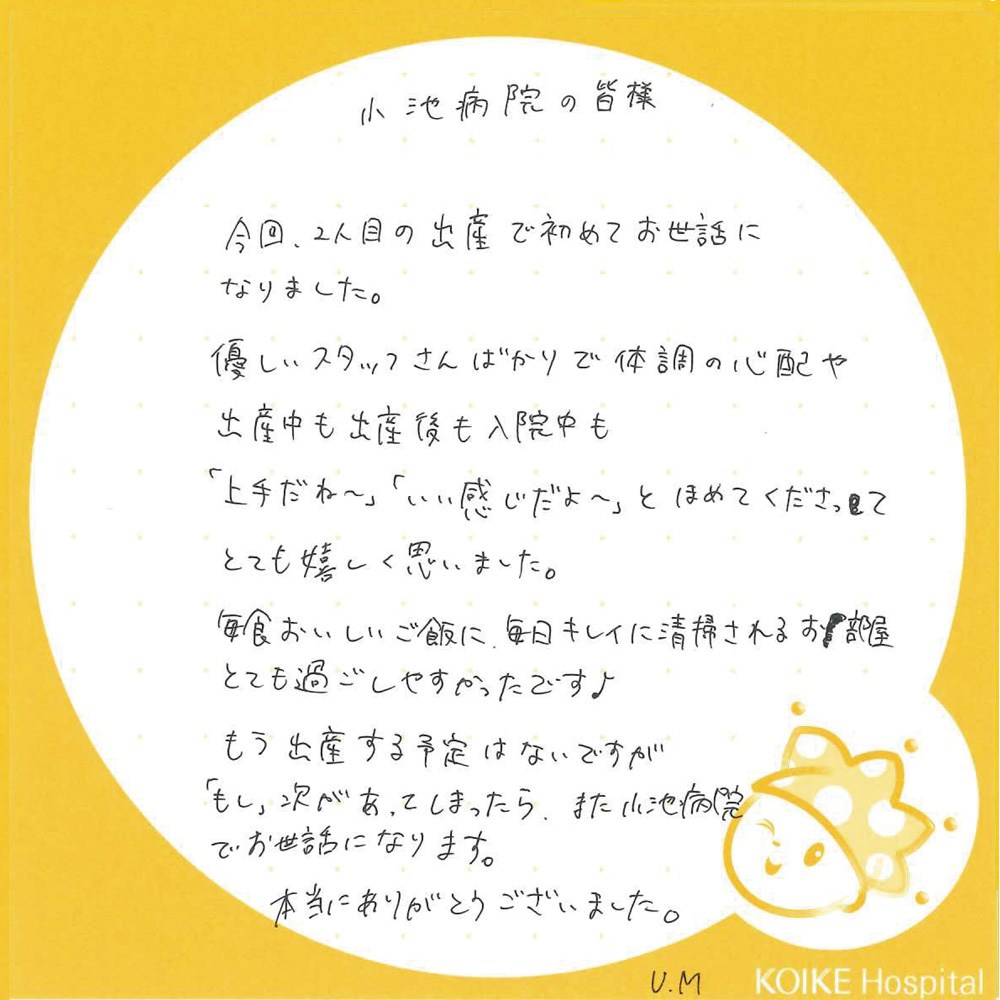 小池病院の皆様
今回、2人目の出産で初めてお世話に
なりました。
優しいスタッフさんばかりで体調の心配や
出産中も出産後も入院中も
「上手だね〜」「いい感じだよ〜」とほめてくださって
とても嬉しく思いました。
毎食おいしいご飯に、毎日キレイに清掃されるお部屋
とても過ごしやすかったです♪
もう出産する予定はないですが
「もし」次があってしまったら、また小池病院
でお世話になります。
本当にありがとうございました。
U.M
KOIKE Hospital